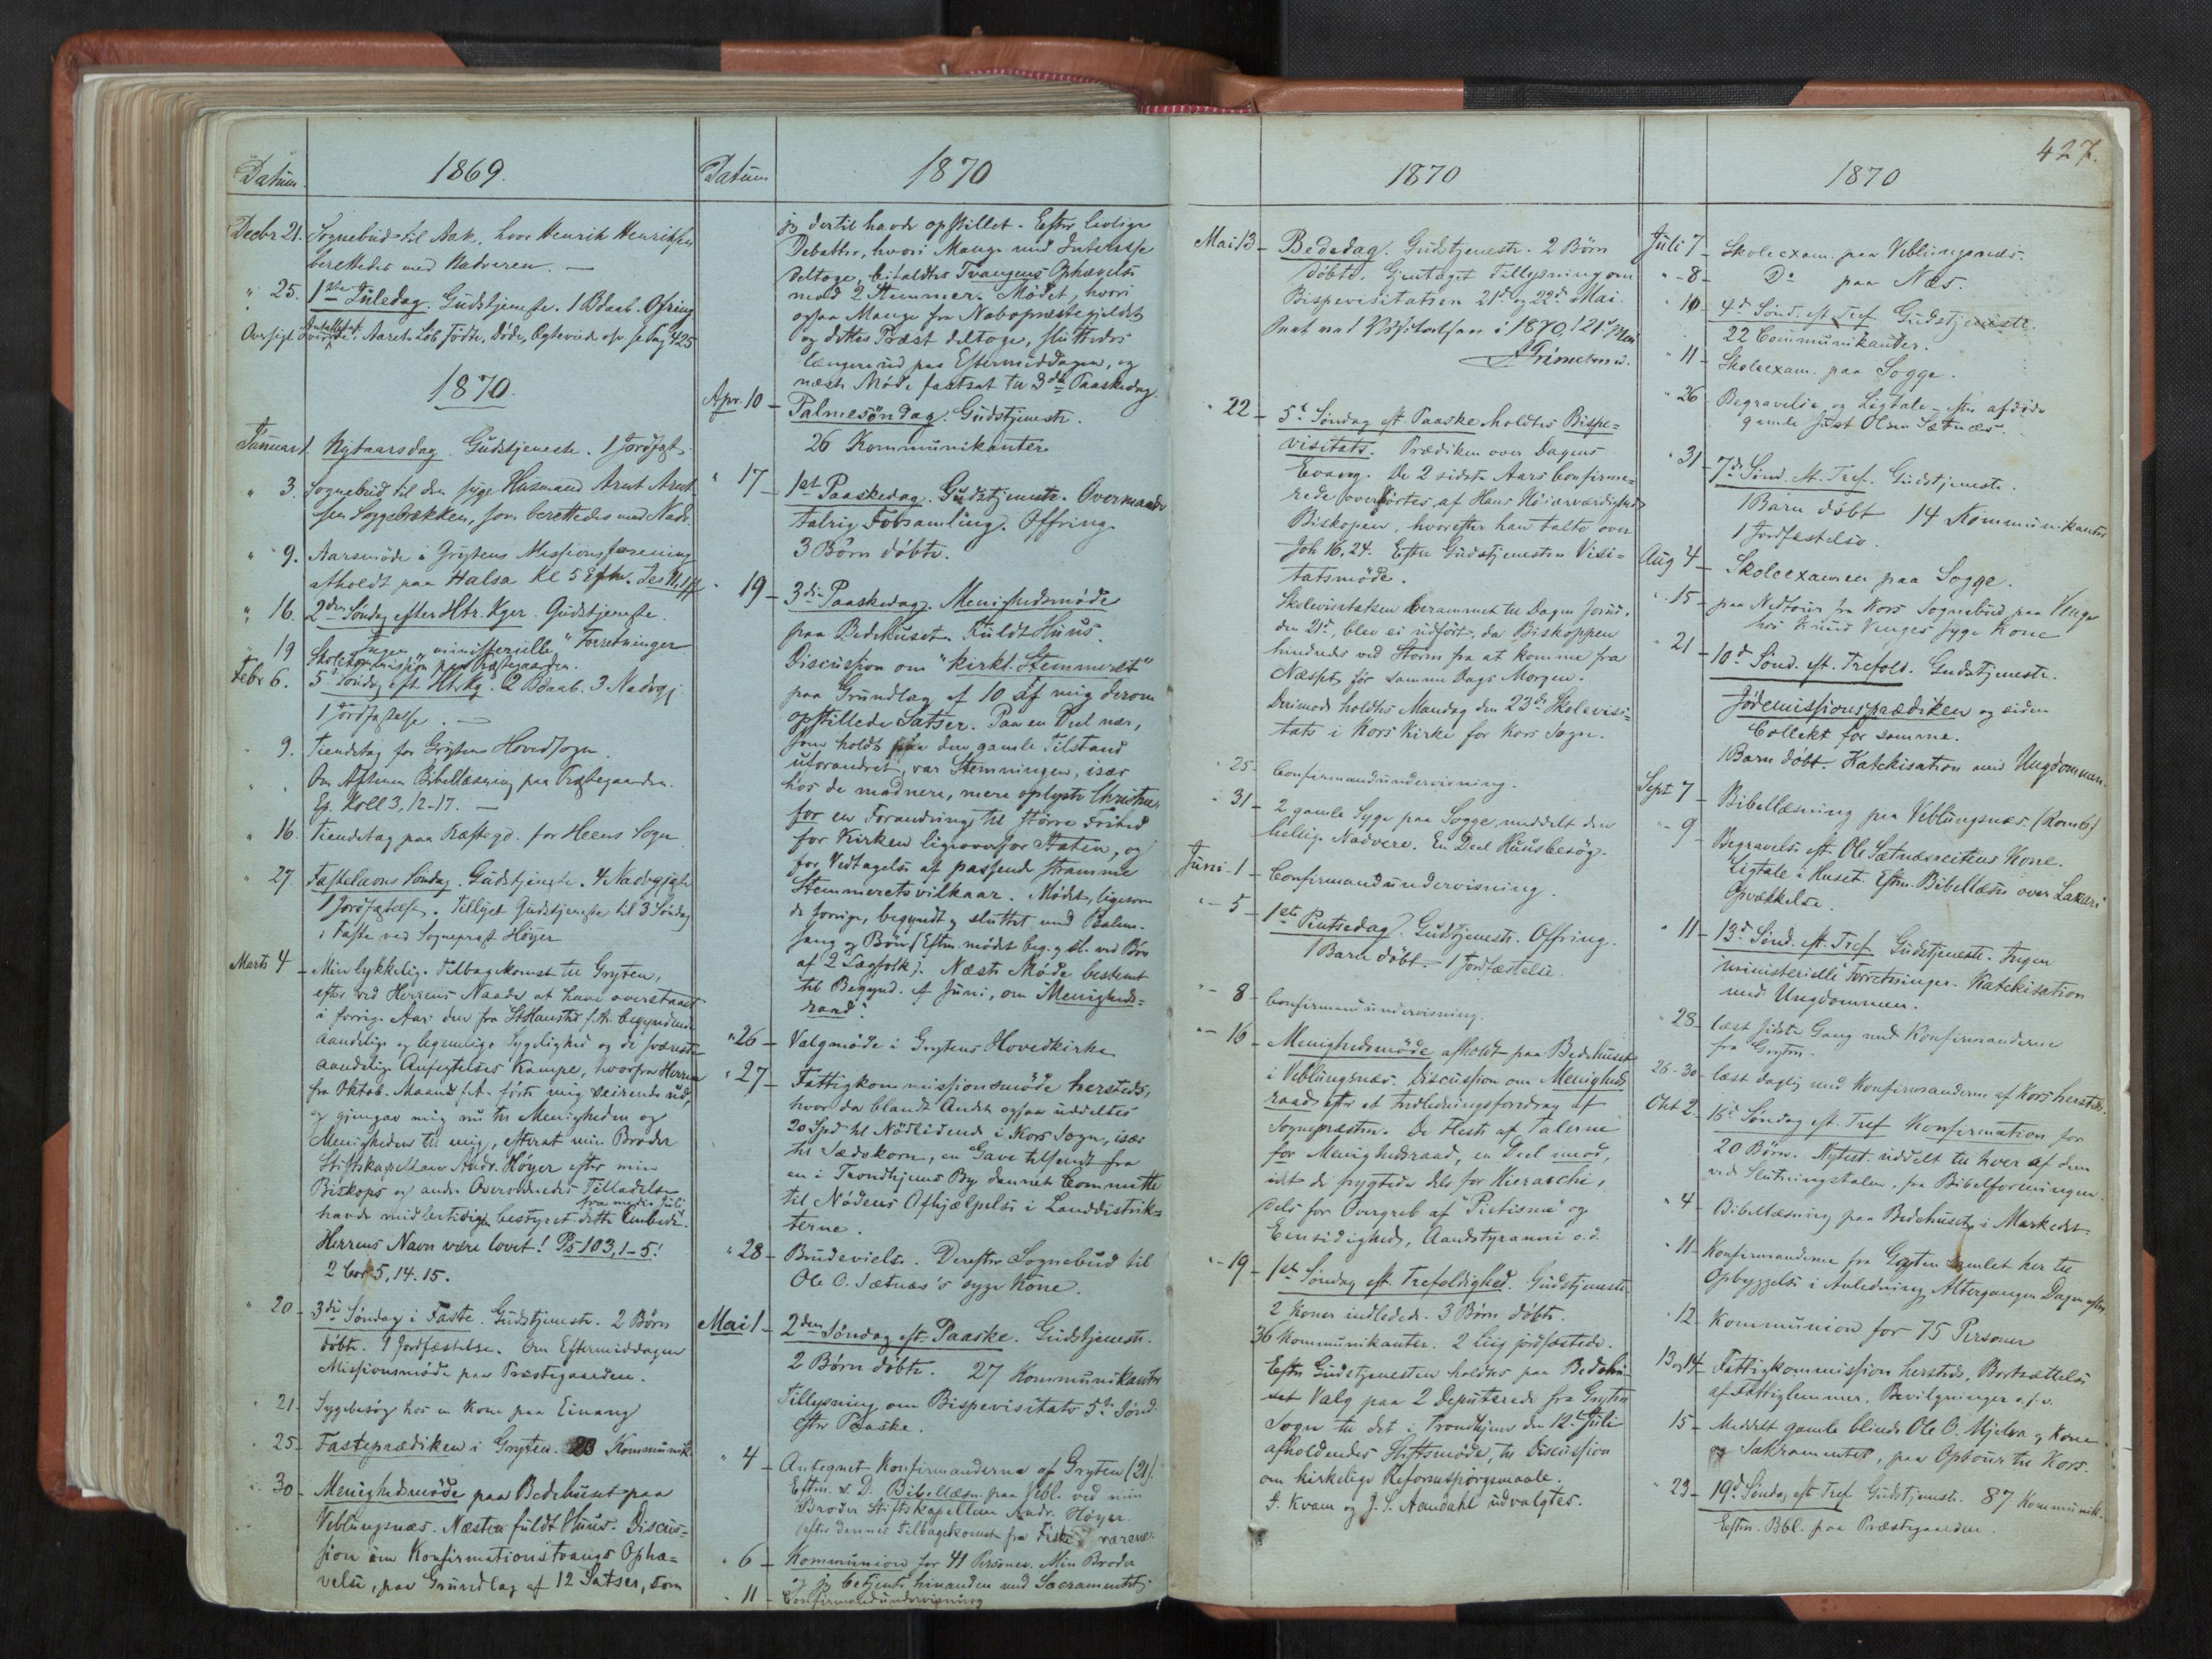 427.
Datum. 1869.
Decbr 21. Sognebud til Aak, hvor Henrik Henriksen
berettedes med Nadveren. —
" 25. 1ste Juledag. Gudstjeneste. 1 Bdaab. Ofring
Oversigt over Antallet af Aarets Løb Fødte, Døde, Ægteviede osv se Pag 425
1870.
Januar 1. Nytaarsdag. Gudstjeneste. 1 Jordfæst.
" 3. Sognebud til den syge Husmand Arnt Arnt-
sen Soggebækken, som berettedes med Nadv.
" 9. Aarsmöde i Grytens Missionsforening
afholdt paa Halsa Kl 5 Efm. Jes 11, 1 ff
" 16. 2den Søndag efter Htr. Kger. Gudstjeneste.
Ingen "ministerielle" Forretninger
" 19 Skolekommission paa Præstegaarden.
Febr 6. 5te Søndag eft. HtrKg. 2 Bdaab. 3 Nadvgj.
1 Jordfæstelse. —
" 9. Tiendetag for Grytens Hovedsogn
" " Om Aftenen Bibellæsning paa Præstegaarden.
Ep. Koll 3, 12-17. —
" 16. Tiendetag paa Præstegd. for Heens Sogn.
" 27. Fastelavns Søndag. Gudstjeneste. 4 Nadvgjæste
1 Jordfæstelse. Tillyst Gudstjeneste til 3 Søndag
i Faste ved Sognepræst Höyer
Marts 4 – Min lykkelige Tilbagekomst til Gryten,
efter ved Herrens Naade at have overstaaet
i forrige Aar den fra StHanstid f.A. begyndende
aandelige og legemlige Sygelighed og de sværeste
aandelige Anfegtelses Kampe, hvorfra Herren
fra Oktob. Maaned f.A. förte mig seirende ud,
og gjengav mig nu til Menigheden og
Menigheden til mig, efterat min Broder
Stiftskapellan Andr. Höyer efter min
Biskops og andre Overordnedes Tilladelse
havde midlertidigen fra medio Juli bestyret dette Embede.
Herrens Navn være lovet! Ps 103, 1-5!
2 Cor 5, 14. 15.
" 20 – 3die Søndag i Faste. Gudstjeneste. 2 Börn
döbte. 1 Jordfæstelse. Om Eftermiddagen
Missionsmöde paa Præstegaarden.
" 21 – Sygebesög hos en Kone paa Einang
" 25 – Fasteprædiken i Gryten. 23 Kommunik.
" 30 – Menighedsmöde paa Bedehuset paa
Veblungsnæs. Næsten fuldt Huus. Discus-
sion om Konfirmationstvangs Ophæ=
velse, paa Grundlag af 12 Satser, som
Datum 1870
jeg dertil havde opstillet. Efter livlige
Debatter, hvori Mange med Interesse
deltoge, bifaldtes Tvangens Ophævelse
mod 2 Stemmer. Mödet, hvori
ogsaa Mange fra Nabopræstegjeldet
og dettes Præst deltoge, sluttedes
længere ud paa Eftermiddagen, og
næste Möde fastsat til 3die Paaskedag.
Apr. 10 – Palmesöndag. Gudstjeneste.
26 Kommunikanter
" 17 – 1ste Paaskedag. Gudstjeneste. Overmaade
talrig Forsamling. Offring.
3 Börn döbte.
" 19 – 3die Paaskedag. Menighedsmöde
paa Bedehuset. Fuldt Huus.
Discussion om "kirkl. Stemmeret"
paa Grundlag af 10 af mig derom
opstillede Satser. Paa en Deel nær,
som holdt paa den gamle Tilstand
uforandret, var Stemningen, især
hos de modnere, mere oplyste Christne,
for en Forandring til större Frihed
for Kirken ligeoverfor Staten, og
for Vedtagelse af passende stramme
Stemmeretsvilkaar. Mödet, ligesom
de forrige, begyndt og sluttet med Psalme-
sang og Bön (Eftm. mödet beg. og sl. ved Bön
af 2 Lægfolk). Næste Möde bestemt
til Begynd. af Juni, om "Menigheds=
raad".
" 26 – Valgmöde i Grytens Hovedkirke
" 27 – Fattigkommissionsmöde hersteds,
hvor da blandt Andet ogsaa uddeltes
20 Spd til Nödlidende i Kors Sogn, især
til Sædekorn, en Gave tilsendt fra
en i Trondhjems By dannet Committe
til Nödens Afhjælpelse i Landdistrik=
terne.
" 28 – Brudevielse. Derefter Sognebud til
Ole O. Sætnæs's syge Kone.
Mai 1 – 2den Söndag eft. Paaske. Gudstjeneste.
2 Börn döbte. 27 Kommunikanter
Tillysning om Bispevisitats 5te Sönd.
efter Paaske.
" 4 – Antegnet Konfirmanderne af Gryten (21).
Eftm. s. D. Bibellæsn. paa Vebl. ved min
Broder Stiftskapellan Andr. Höyer.
(efter dennes Tilbagekomst fra Fiskeværene.
" 6 – Kommunion for 41 Personer. Min Broder
og jeg betjente hinanden med Sacramentet
" 11 – Confirmandundervisning
1870
Mai 13 – Bededag. Gudstjeneste. 2 Börn
döbte. Gjentaget Tillysning om
Bispevisitatsen 21de og 22de Mai.
i 1870, 21 Mai
Grimelund.
" 22 – 5te Söndag eft. Paaske holdtes Bispe=
visitats. Prædiken over Dagens
Evang. De 2 sidste Aars Confirme=
rede overhörtes af Hans Höiærværdighed
Biskopen, hvorefter han talte over
Joh 16, 24. Efter Gudstjenesten Visi=
tatsmöde.
Skolevisitatsen berammet til Dagen forud,
den 21de, blev ei udfört, da Biskoppen
hindredes ved Storm fra at komme fra
Næsset för samme Dags Morgen.
Derimod holdtes Mandag den 23de Skolevisi=
tats i Kors Kirke for Kors Sogn.
" 25 – Confirmandundervisning.
" 31 – 2 gamle Syge paa Sogge meddelt den
hellige Nadvere. En Deel Huusbesög.
Juni 1 – Confirmandundervisning.
" 5 – 1ste Pintsedag. Gudstjeneste. Offring.
1 Barn döbt. 1 Jordfæstelse.
" 8 – Confirmandundervisning.
" 16 – Menighedsmöde afholdt paa Bedehuset
i Veblungsnæs. Discussion om Menigheds
raad efter et Indledningsforedrag af
Sognepræsten. De Fleste af Talerne
for Menighedsraad, en Deel imod,
idet de frygtede dels for Hierarchi,
dels for Overgreb af "Pietisme" og
Eensidighed, Aandstyranni o.d.
" 19 – 1ste Söndag eft. Trefoldighed. Gudstjeneste
2 Koner indledede. 3 Börn döbte.
36 Kommunikanter. 2 Liig jordfæstede.
Efter Gudstjenesten holdtes paa Bedehu-
set Valg paa 2 Deputerede fra Gryten
Sogn til det i Trondhjem den 12te Juli
afholdendes Stiftsmöde, til Discussion
om kirkelige Reformspörgsmaale.
S. Kvam og J. S. Aandahl udvalgtes.
1870
Juli 7 – Skoleexam. paa Veblungsnæs.
" 8 – Do paa Næs.
" 10 – 4de Sönd. eft. Tref. Gudstjeneste.
22 Communikanter.
" 11 – Skoleexam. paa Sogge.
" 26 – Begravelse og Ligtale efter afdöde
gamle Just Olsen Sætnæs.
" 31 – 7de Sönd. eft. Tref. Gudstjeneste.
1 Barn döbt 14 Kommunikanter
1 Jordfæstelse.
Aug 4 – Skoleexamen paa Sogge.
" 15 – paa Nedtour fra Kors Sognebud paa Venge
hos Knud Venges syge Kone
" 21 – 10de Sönd. eft. Trefold. Gudstjeneste.
Jödemissionsprædiken og siden
Collekt for samme.
1 Barn döbt. Katekisation med Ungdommen.
Sept 7 – Bibellæsning paa Veblungsnæs. (Rom 6)
" 9 – Begravelse eft. Ole Sætnæsreitens Kone.
Ligtale i Huset. Eftm. Bibellæsn. over Lazari
Opvækkelse.
" 11 – 13de Sönd. eft. Tref. Gudstjeneste. Ingen
"ministerielle" Forretninger. Katekisation
med Ungdommen.
" 28 – læst sidste Gang med Konfirmanderne
fra Gryten.
26-30 – læst daglig med Konfirmanderne af Kors hersteds.
Okt 2 – 16de Söndag eft. Tref. Konfirmation for
20 Börn. Nytest. uddelt til hver af dem
ved Slutningstalen, fra Bibelforeningen.
" 4 – Bibellæsning paa Bedehuset i Markedet.
" 11 – Konfirmanderne fra Gryten samlet her til
Opbyggelse i Anledning Altergangen Dagen efter
" 12 – Kommunion for 75 Personer
13 og 14 – Fattigkommission hersteds, Bortsættelse
af Fattiglemmer, Bevilgninger o.s.v.
15 – Meddelt gamle blinde Ole O. Mjelva og Kone
Sakramentet, paa Optour til Kors.
" 23 – 19de Söndag eft. Tref. Gudstjeneste. 87 Kommunik.
Eftm. Bbl. paa Præstegaarden.